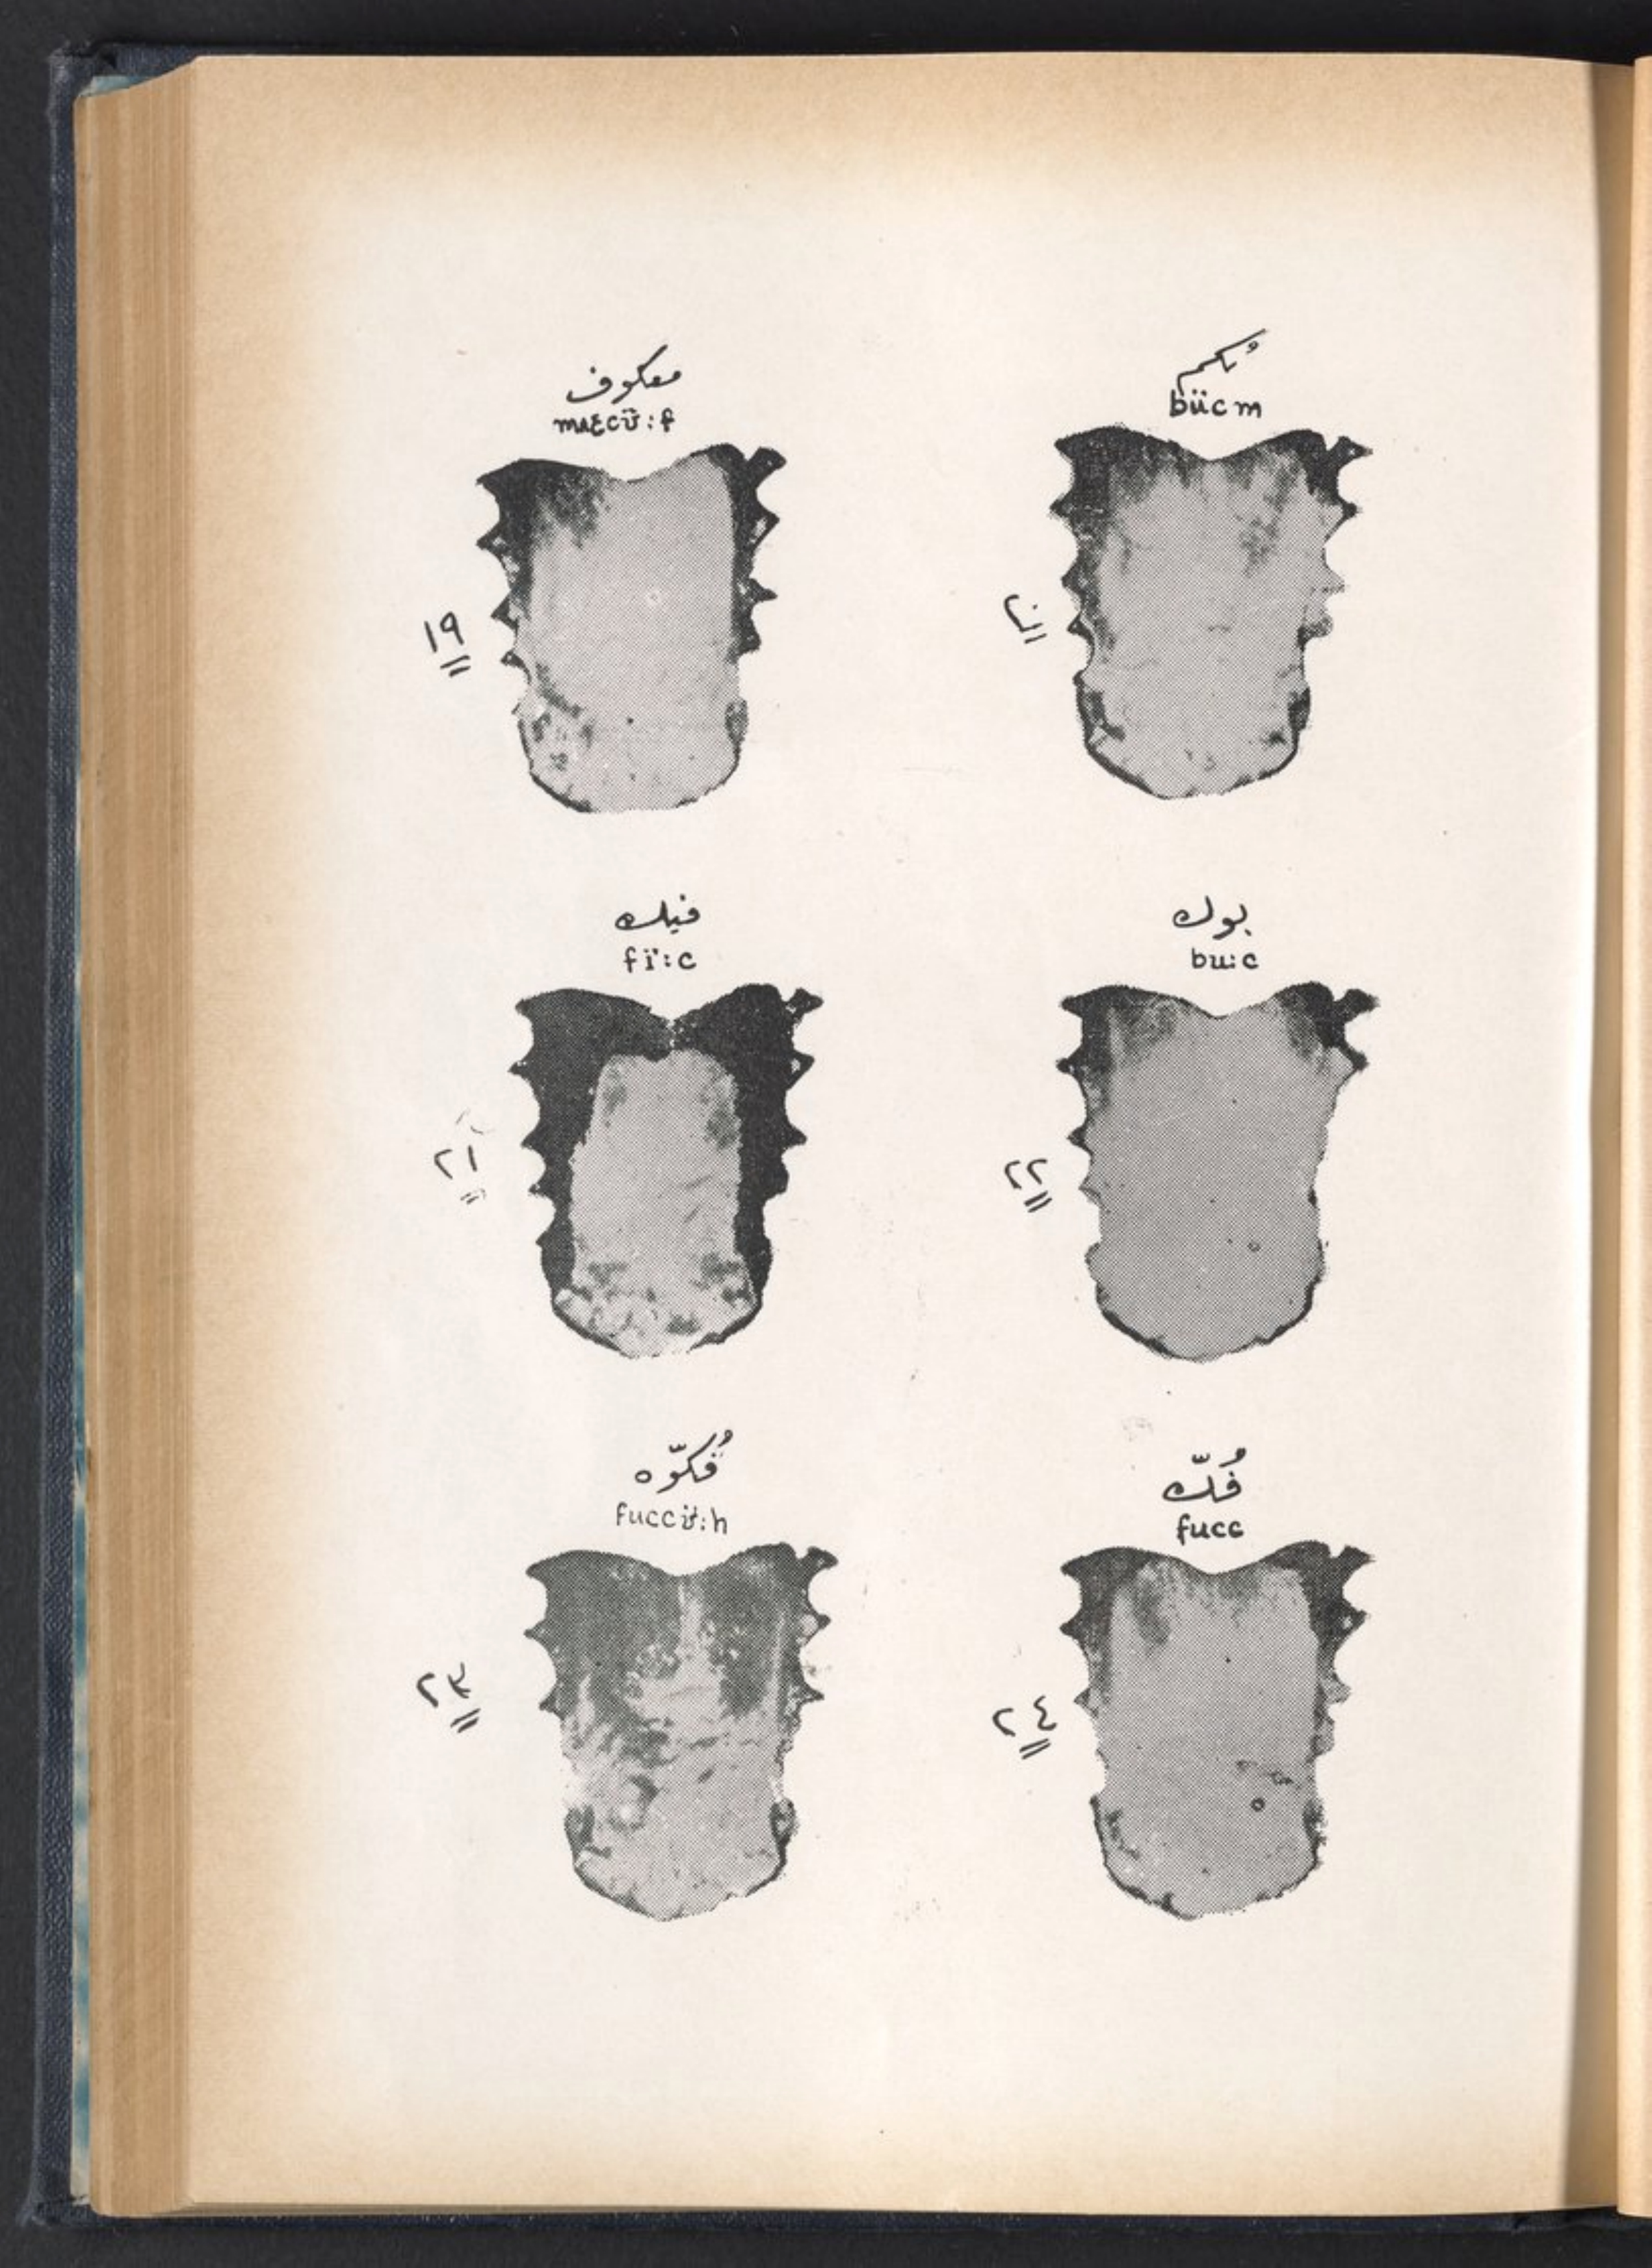 معكوف
mʌƐcʊ̈:f
١٩
بُكم
bücm
٢٠
فيك
fï:c
٢١
بوك
bu:c
٢٢
فُكّوه
fuccʊ̈:h
٢٣
فُكّ
fucc
٢٤